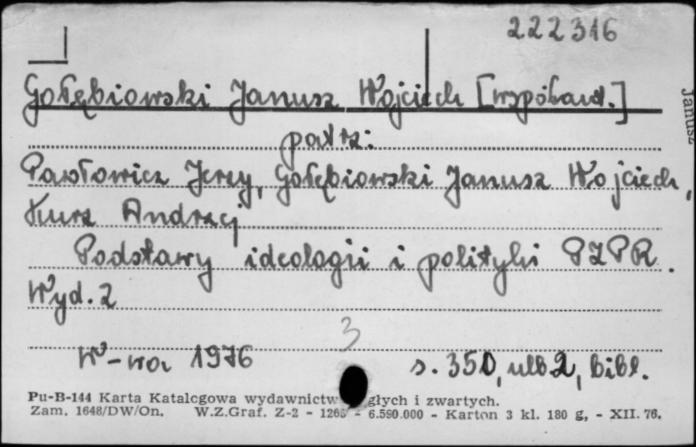 222316
Gołębiowski Janusz Wojciech [współaut.]
patrz:
Pawłowicz Jerzy, Gołębiowski Janusz Wojciech,
Kurz Andrzej
Podstawy ideologii i polityki PZPR.
Wyd. 2
3
W-wa 1976 s. 350, nlb 2, bibl.
Pu-B-144 Karta Katalogowa wydawnictw głych i zwartych.
Zam. 1648/DW/On. W.Z.Graf. Z-2 - 1265 - 6.590.000 - Karton 3 kl. 180 g, - XII. 76.
Janusz